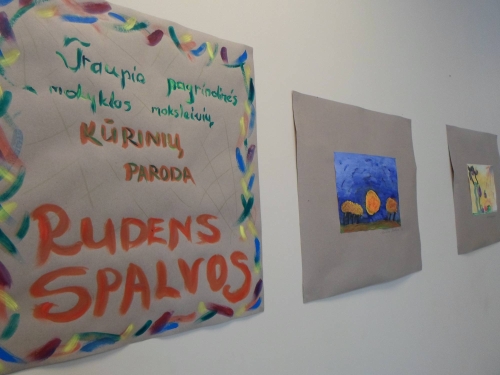 Traupio pagrindinės
mokyklos moksleivių
KŪRINIŲ
PARODA
RUDENS
SPALVOS